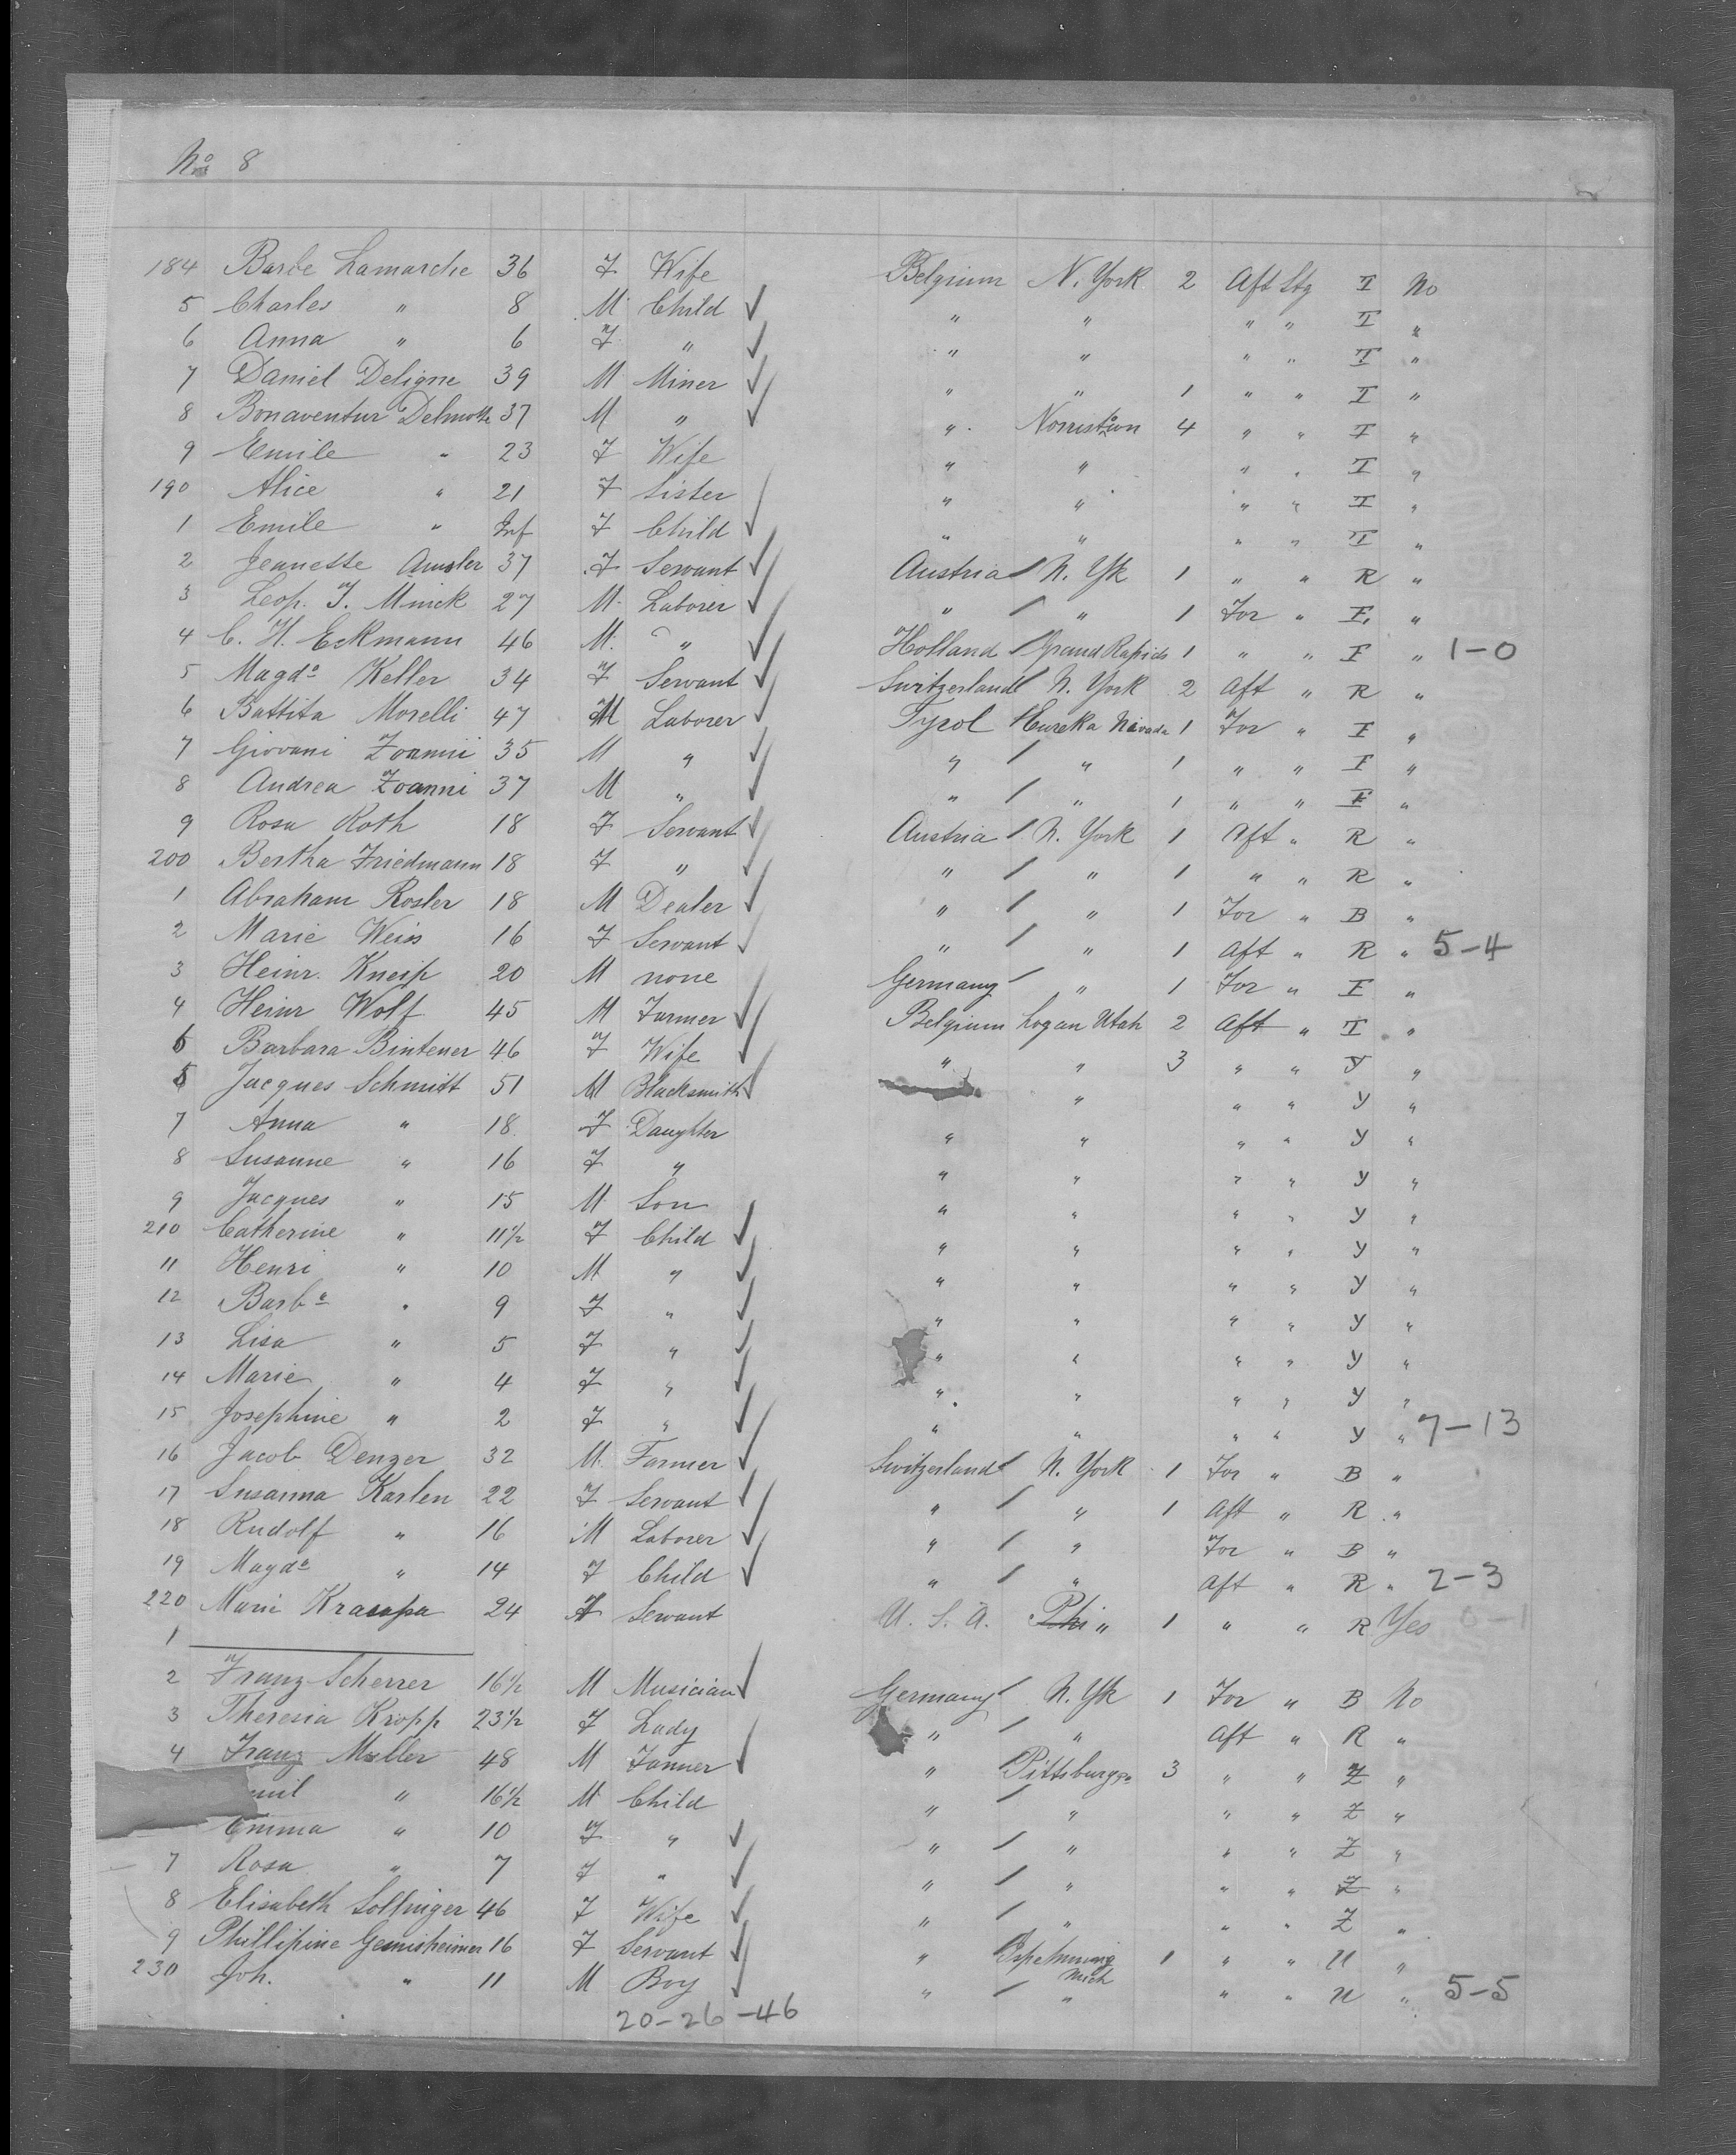 No 8
184 Barbe Lamarche 36 F Wife Belgium N. York 2 Aft Stg I No
5 Charles " 8 M Child " " " " I "
6 Anna " 6 F " " " " " I "
7 Daniel Deligne 39 M Miner " " 1 " " I "
8 Bonaventur Delmotte 37 M " " Norristown 4 " " I "
9 Emile " 23 F Wife " " " " I "
190 Alice " 21 F Sister " " " " I "
1 Emile " Inf F Child " " " " I "
2 Jeanette Amsler 37 F Servant Austria N. Yk 1 " " R "
3 Leop. J. Minick 27 M Laborer " " 1 For " F. "
4 C. H. Eckmann 46 M. " Holland Grand Rapids 1 " " F " 1-0
5 Magda Keller 34 F Servant Switzerland N. York 2 Aft " R "
6 Battita Morelli 47 M Laborer Tyrol Eureka Nevada 1 For " F "
7 Giovani Zoanni 35 M " " " 1 " " F "
8 Andrea Zoanni 37 M " " " 1 " " F "
9 Rosa Roth 18 F Servant Austria N. York 1 Aft " R "
200 Bertha Friedmann 18 F " " " 1 " " R "
1 Abraham Rosler 18 M Dealer " " 1 For " B "
2 Marie Weiss 16 F Servant " " 1 Aft " R " 5-4
3 Heinr. Kneip 20 M none Germany " 1 For " F "
4 Heinr Wolf 45 M Farmer Belgium Logan Utah 2 Aft " I "
6 Barbara Bintener 46 F Wife " " 3 " " Y "
5 Jacques Schmitt 51 M Blacksmith " " " Y "
7 Anna " 18 F Daughter " " " " Y "
8 Susanne " 16 F " " " " " Y "
9 Jacques " 15 M Son " " " " Y "
210 Catherine " 11 1/2 F Child " " " " Y "
11 Henri " 10 M " " " " " Y "
12 Barba " 9 F " " " " " Y "
13 Lisa " 5 F " " " " " Y "
14 Marie " 4 F " " " " " Y "
15 Josephine " 2 F " " " " " Y " 7-13
16 Jacob Denzer 32 M. Farmer Switzerland N. York 1 For " B "
17 Susanna Karlen 22 F Servant " " 1 Aft " R "
18 Rudolf " 16 M Laborer " " For " B "
19 Magda " 14 F Child " " Aft " R " 2-3
220 Marie 24 F Servant U. S. A. Phi " 1 " " R Yes 0-1
1
2 Franz Scherrer 16 1/2 M Musician Germany N. Yk 1 For " B No
3 Theresia Kropp 23 1/2 F Lady " " Aft " R "
4 Franz Müller 48 M Farmer " Pittsburg 3 " " Z "
mil " 16 1/2 M Child " " " " Z "
Emma " 10 F " " " " " Z "
7 Rosa " 7 F " " " " " Z "
8 Elisabeth Sollinger 46 F Wife " " " " Z "
9 Phillipine Gensheimer 16 F Servant " Ishpeming Mich 1 " " U "
230 Joh. " 11 M Boy " " " " U " 5-5
20-26-46